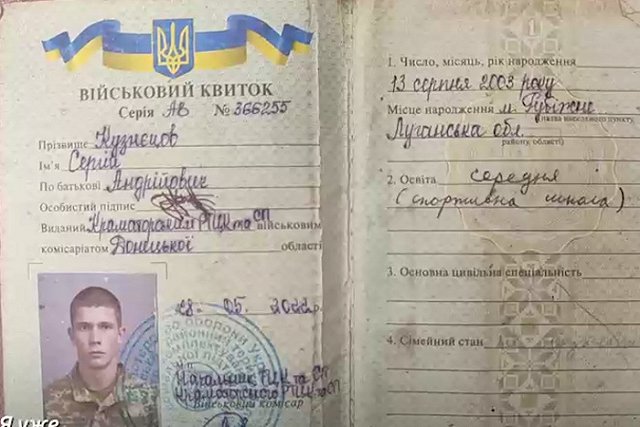 ВІЙСЬКОВИЙ КВИТОК
Серія АВ № 366255
Прізвище Кузнєцов
Ім'я Сергій
По батькові Андрійович
Особистий підпис
Виданий Краматорський РТЦК та СП військовим
комісаріатом Донецької області
28. 05. 2022р
Начальник РТЦК та СП
Краматорського РТЦК та СП
Військовий комісар
Я уже
1
1. Число, місяць, рік народження
13 серпня 2003 року
Місце народження м. Рубіжне
(назва населеного пункту,
Луганська обл.
району, області)
2. Освіта середня
(спортивна школа)
3. Основна цивільна спеціальність
4. Сімейний стан